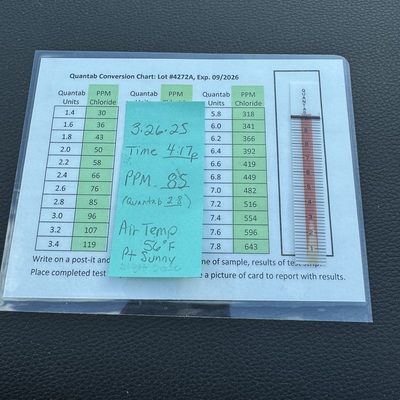 Quantab Conversion Chart: Lot #4272A, Exp. 09/2026
Quantab Units PPM Chloride Quantab PPM Quantab Units PPM Chloride
1.4 30 5.8 318
1.6 36 6.0 341
1.8 43 6.2 366
2.0 50 6.4 392
2.2 58 6.6 419
2.4 66 6.8 449
2.6 76 7.0 482
2.8 85 7.2 516
3.0 96 7.4 554
3.2 107 7.6 596
3.4 119 7.8 643
3.26.25
Time 4:17p
PPM 85
(Quantab 2.8)
Air Temp
56°F
Pt Sunny
QUANTAB
Write on a post-it and me of sample, results of test
Place completed test e a picture of card to report with results.